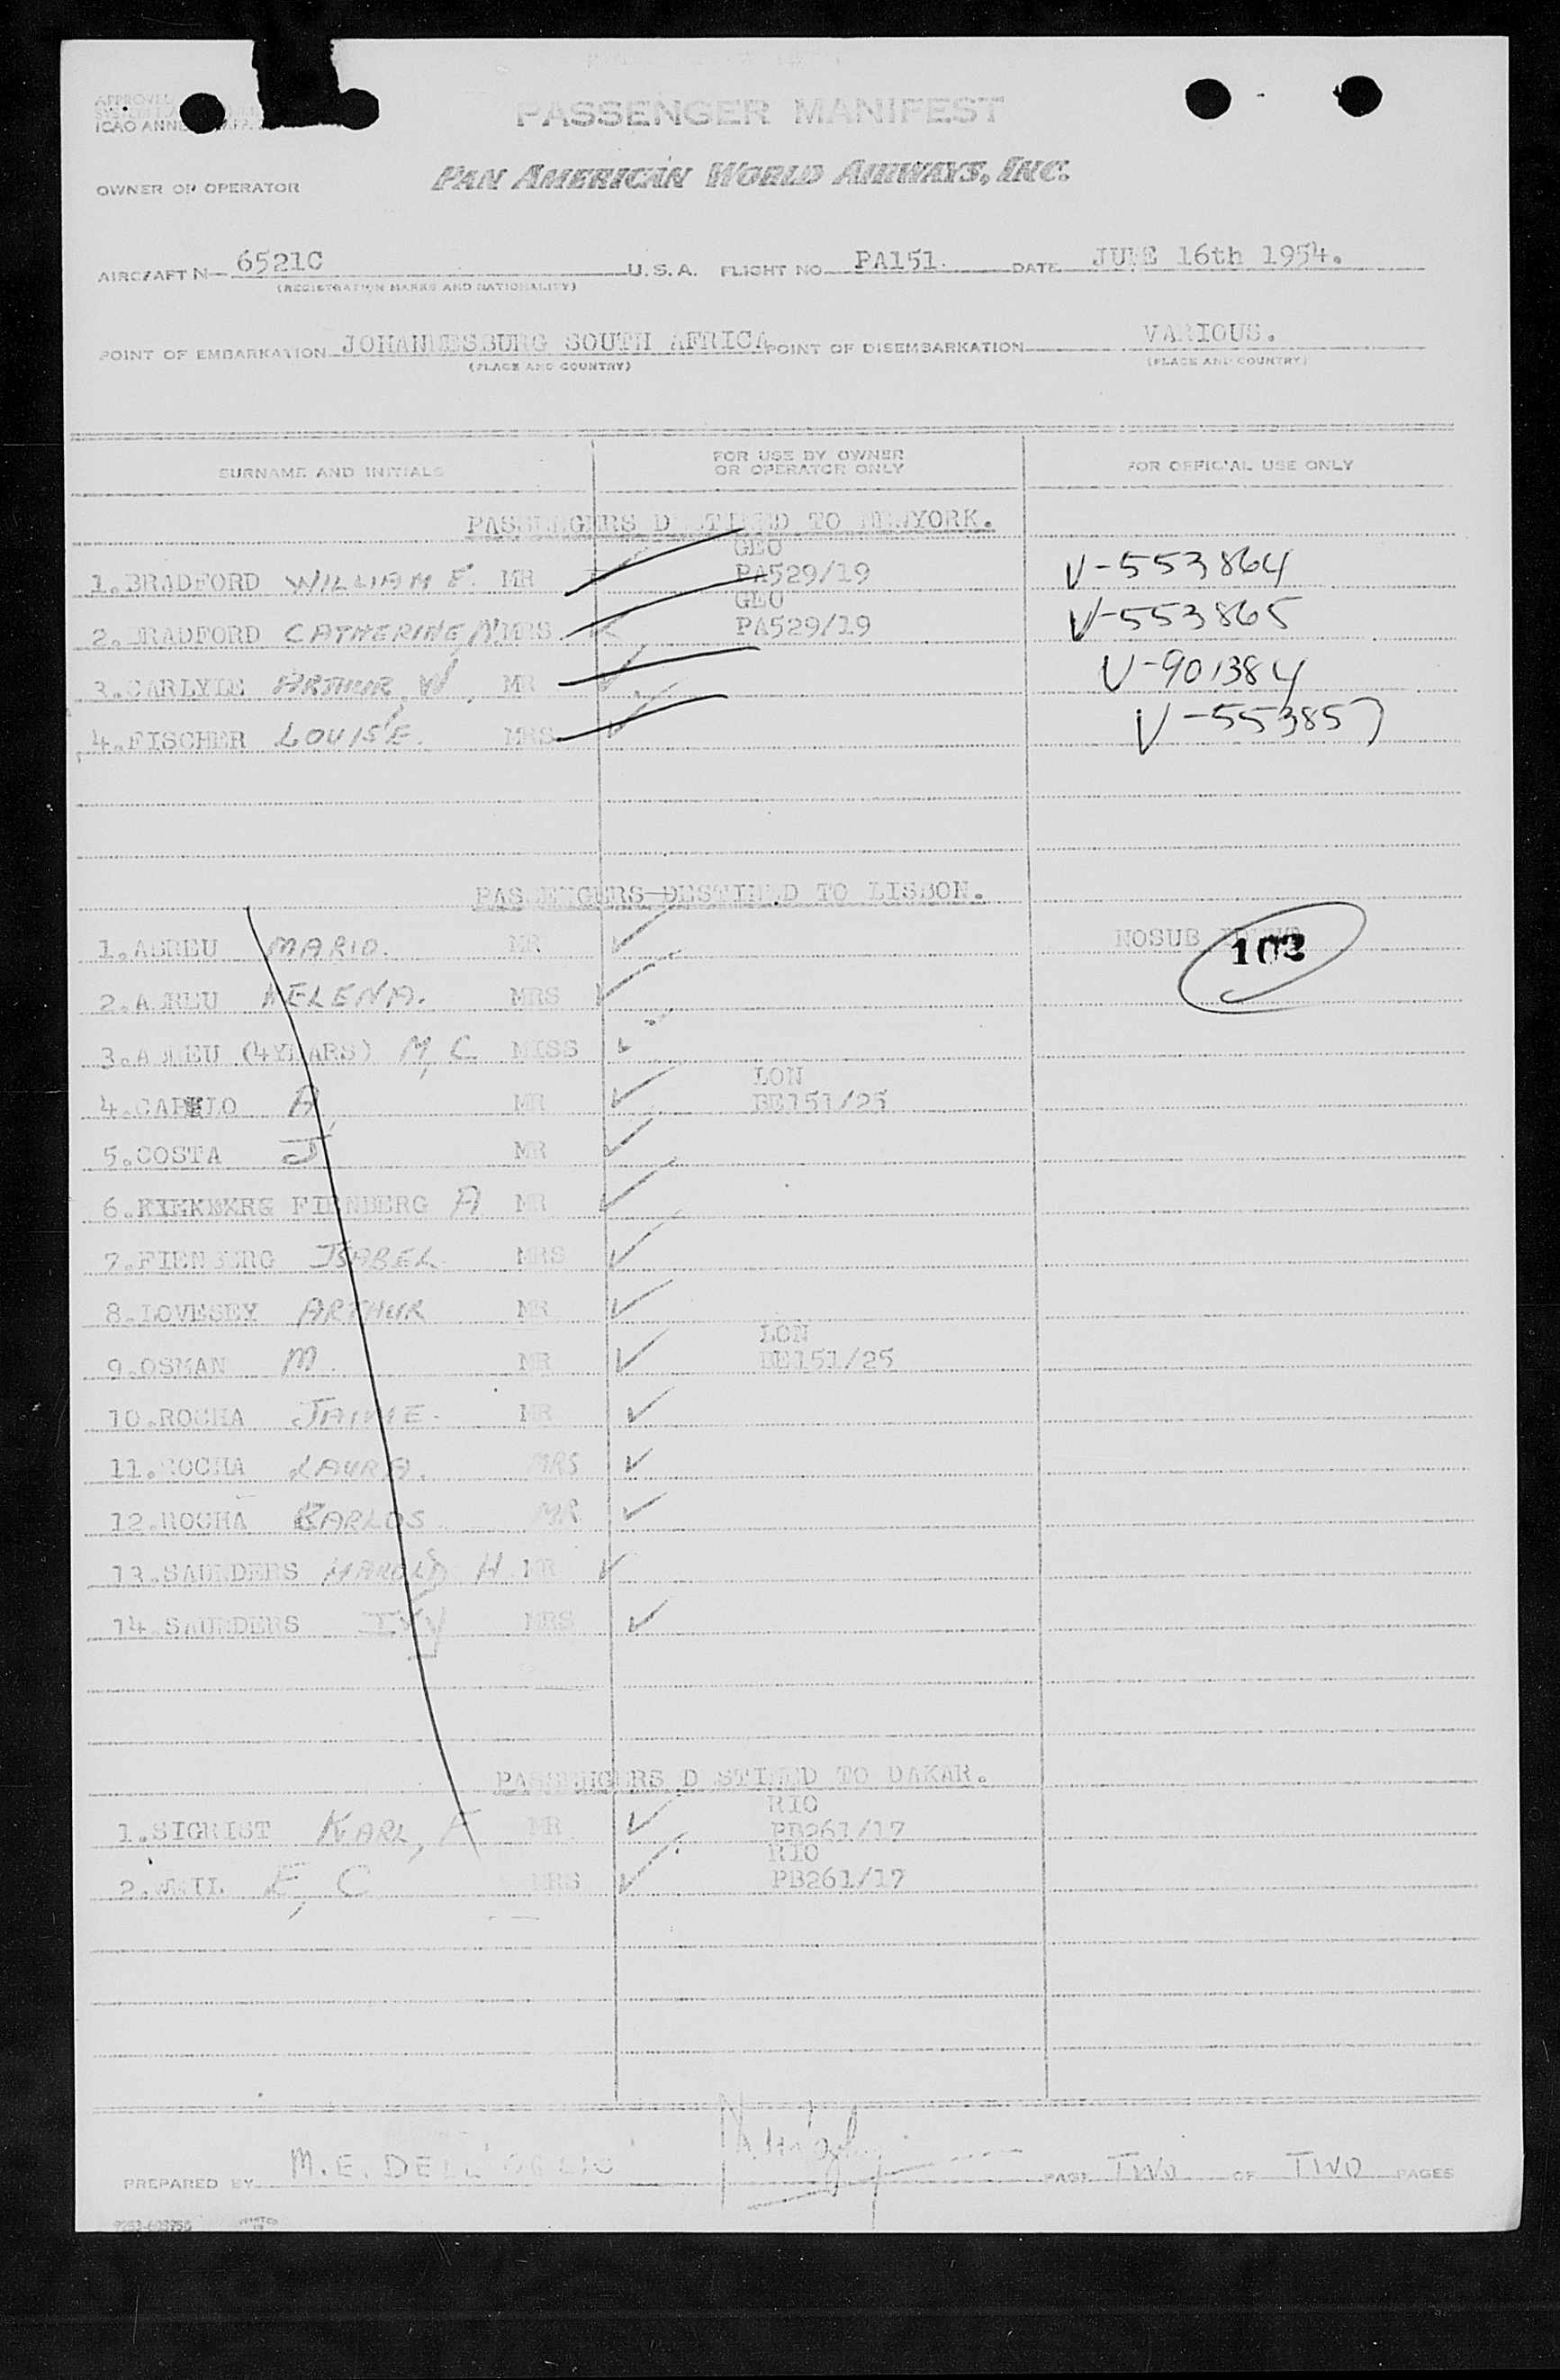 PASSENGER MANIFEST
APPROVED
ICAO ANNE
OWNER OR OPERATOR PAN AMERICAN WORLD AIRWAYS, INC.
AIRCRAFT N- 6521C U.S.A. FLIGHT NO. PA151. DATE JUNE 16th 1954.
(REGISTRATION MARKS AND NATIONALITY)
POINT OF EMBARKATION JOHANNESBURG SOUTH AFRICA POINT OF DISEMBARKATION VARIOUS.
(PLACE AND COUNTRY) (PLACE AND COUNTRY)
SURNAME AND INITIALS FOR USE BY OWNER OR OPERATOR ONLY FOR OFFICIAL USE ONLY
PASSENGERS DESTINED TO NEWYORK.
GEO
1.BRADFORD WILLIAM E. MR PA529/19 V-553864
GEO
2.BRADFORD CATHERINE, N. MRS PA529/19 V-553865
3.CARLYLE ARTHUR, W. MR V-901384
4.FISCHER LOUISE. MRS V-553857
PASSENGERS DESTINED TO LISBON.
1.ABREU MARIO. MR NOSUB 102
2.ABREU HELENA. MRS
3.ABREU (4YEARS) M, C MISS
LON
4.CAPELO A MR BE151/25
5.COSTA J MR
6. FIENBERG A MR
7.FIENBERG ISABEL MRS
8.LOVESEY ARTHUR MR
LON
9.OSMAN M. MR BE151/25
10.ROCHA JAIME. MR
11.ROCHA LAURA. MRS
12.ROCHA KARLOS MR
13.SAUNDERS HAROLD H MR
14.SAUNDERS IVY MRS
PASSENGERS DESTINED TO DAKAR.
RIO
1.SIGRIST KARL, F MR PB261/17
RIO
2. E, C MRS PB261/17
PREPARED BY M.E. DELL'OGLIO PAGE TWO OF TWO PAGES
PRINTED